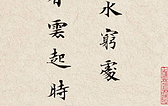 水窮處
看雲起時